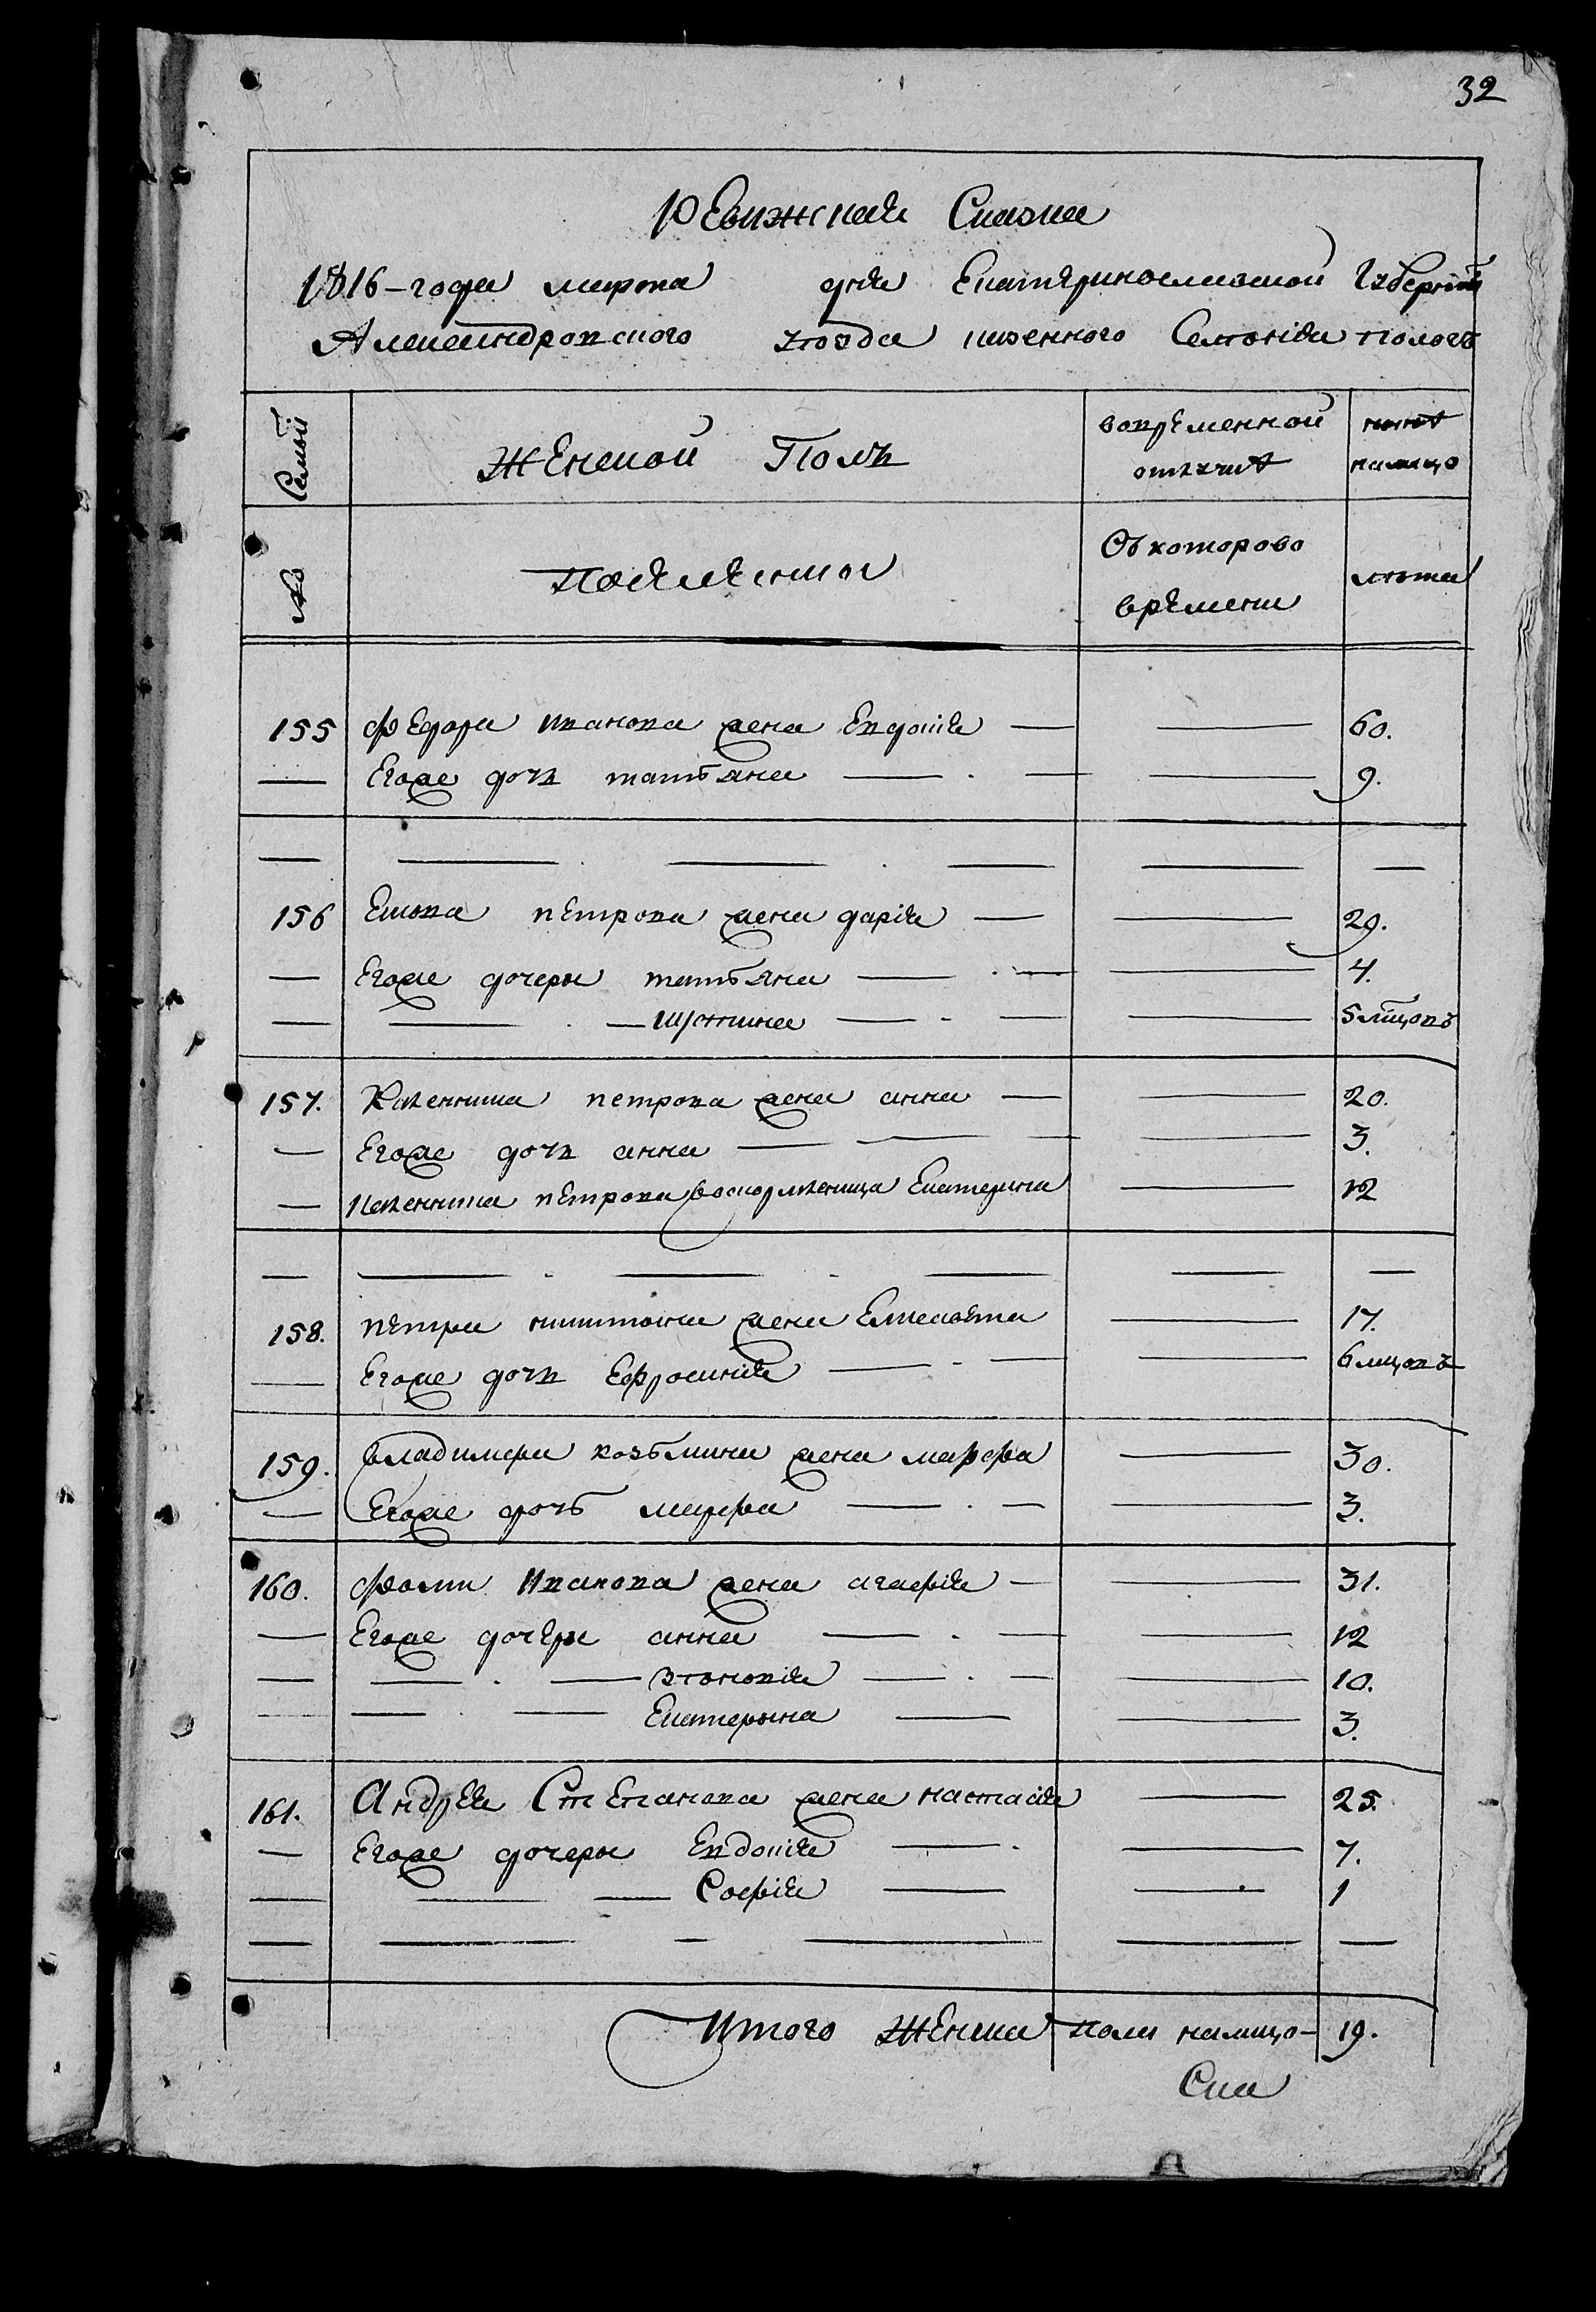 32
Ревижская Сказка
1816-года марта дня Екатеринославской Губернїи
Александровского уѣзда казенного Селенїя пологъ
Семьи
Женской Полъ
вовременной отлучкѣ
нынѣ налицо
№
поселенки
Съ которово времени
лѣта
155 Федора иванова жена Евдокія — — 60.
— Егоже дочь татьяна — — 9.
156 Якова петрова жена дарія — — 29.
— Егоже дочеры татьяна — — 4.
— — Устина — — 5 мѣсяцовъ
157. Калинника петрова жена анна — — 20.
— Егоже дочь анна — — 3.
— калинника петрова воскормленица Екатерина — 12
158. петра никитина жена Елисавета — 17.
— Егоже дочь Ефросинія — — 6 мѣсяцовъ
159. владимера козьмина жена марфа — 30.
— Егоже дочь марфа — — 3.
160. фомы Иванова жена агафія — — 31.
— Егоже дочеры анна — — 12
— — — — — 10.
— — Екатерына — — 3.
161. Андрея Степанова жена настасія — 25.
— Егоже дочеры Евдокія — — 7.
— — Софія — — 1
Итого Женска пола налицо — 19.
Ска